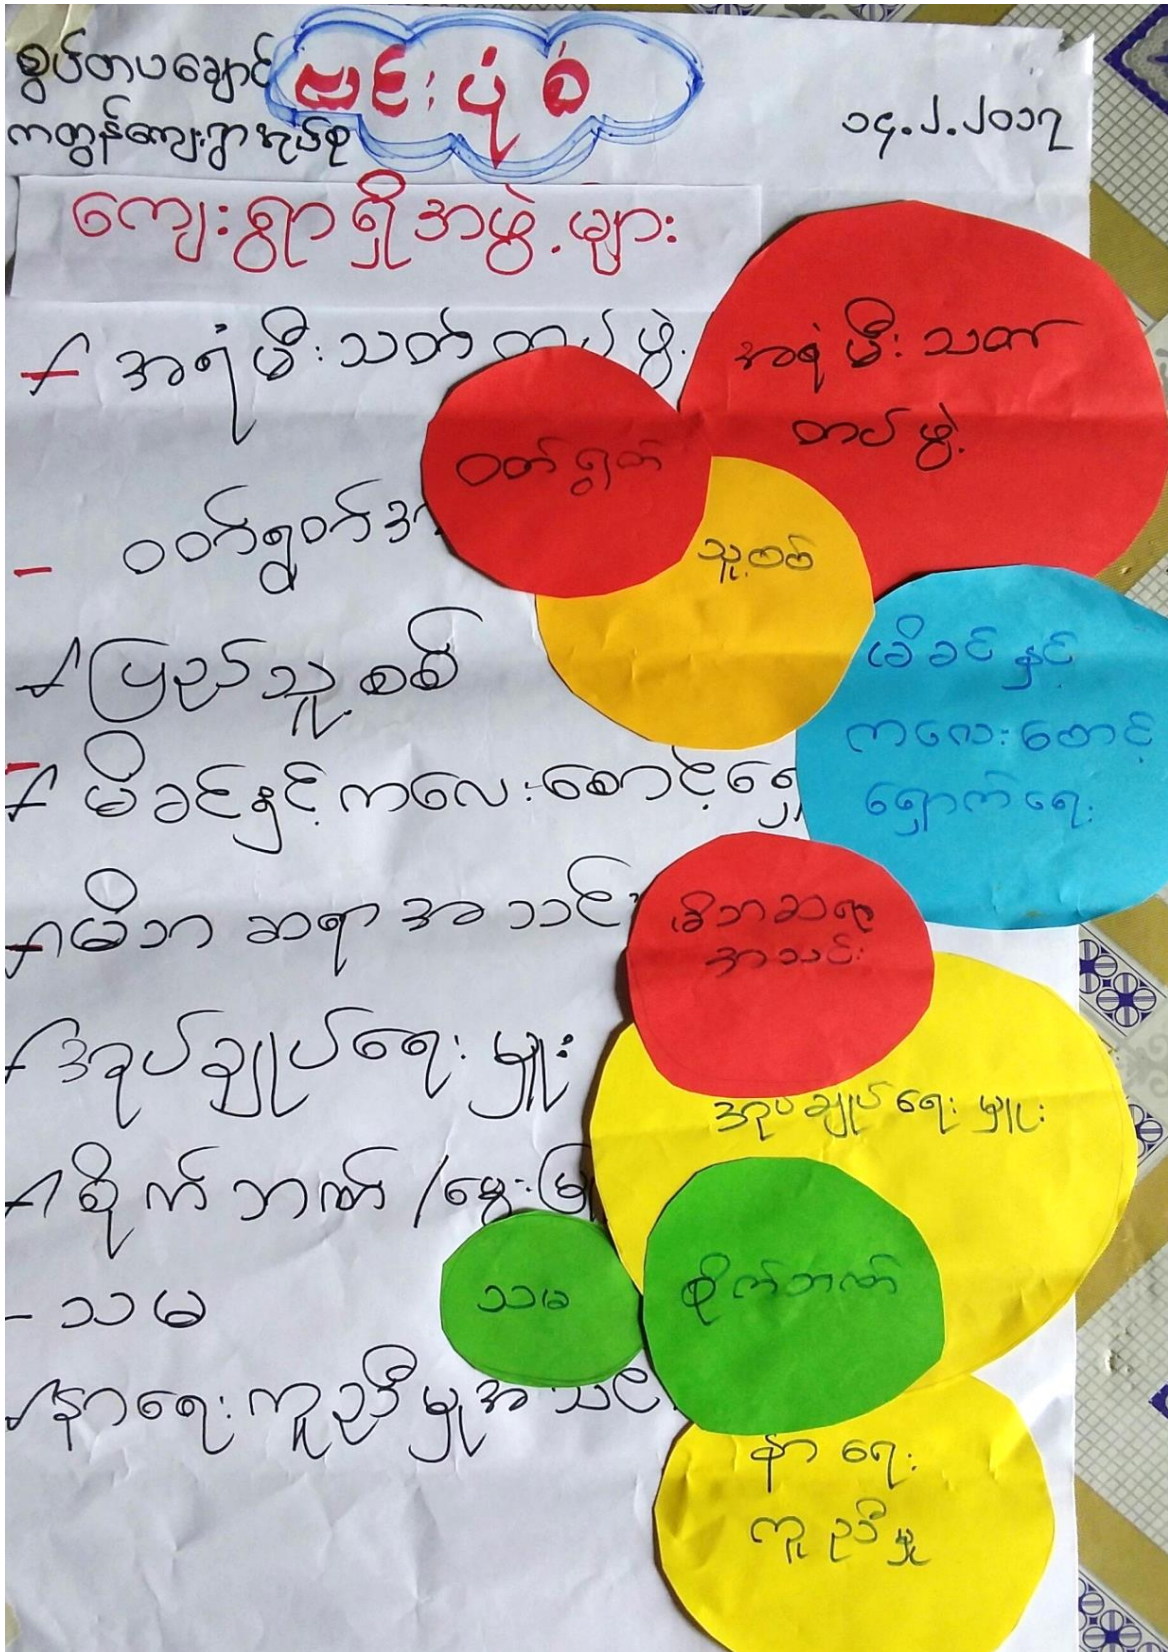 စွပ်တပချောင်
ကတွန်ကျေးရွာအုပ်စု
ဗင်းပုံစံ
၁၄.၂.၂၀၁၇
ကျေးရွာရှိအဖွဲ့များ
အရံမီးသတ်တပ်ဖွဲ့
ဝတ်ရွတ်အ
ပြည်သူ့စစ်
မိခင်နှင့်ကလေးစောင့်ရှေ
မိဘဆရာအသင်း
အုပ်ချုပ်ရေးမှူး
စိုက်ဘဏ်/မွေးမြူ
သမ
နာရေးကူညီမှုအသင်း
အရံမီးသတ်
တပ်ဖွဲ့
ဝတ်ရွတ်
သူ့စစ်
မိခင်နှင့်
ကလေးစောင့်
ရှောက်ရေး
မိဘဆရာ
အသင်း
အုပ်ချုပ်ရေးမှူး
စိုက်ဘဏ်
သမ
နာရေး
ကူညီမှု